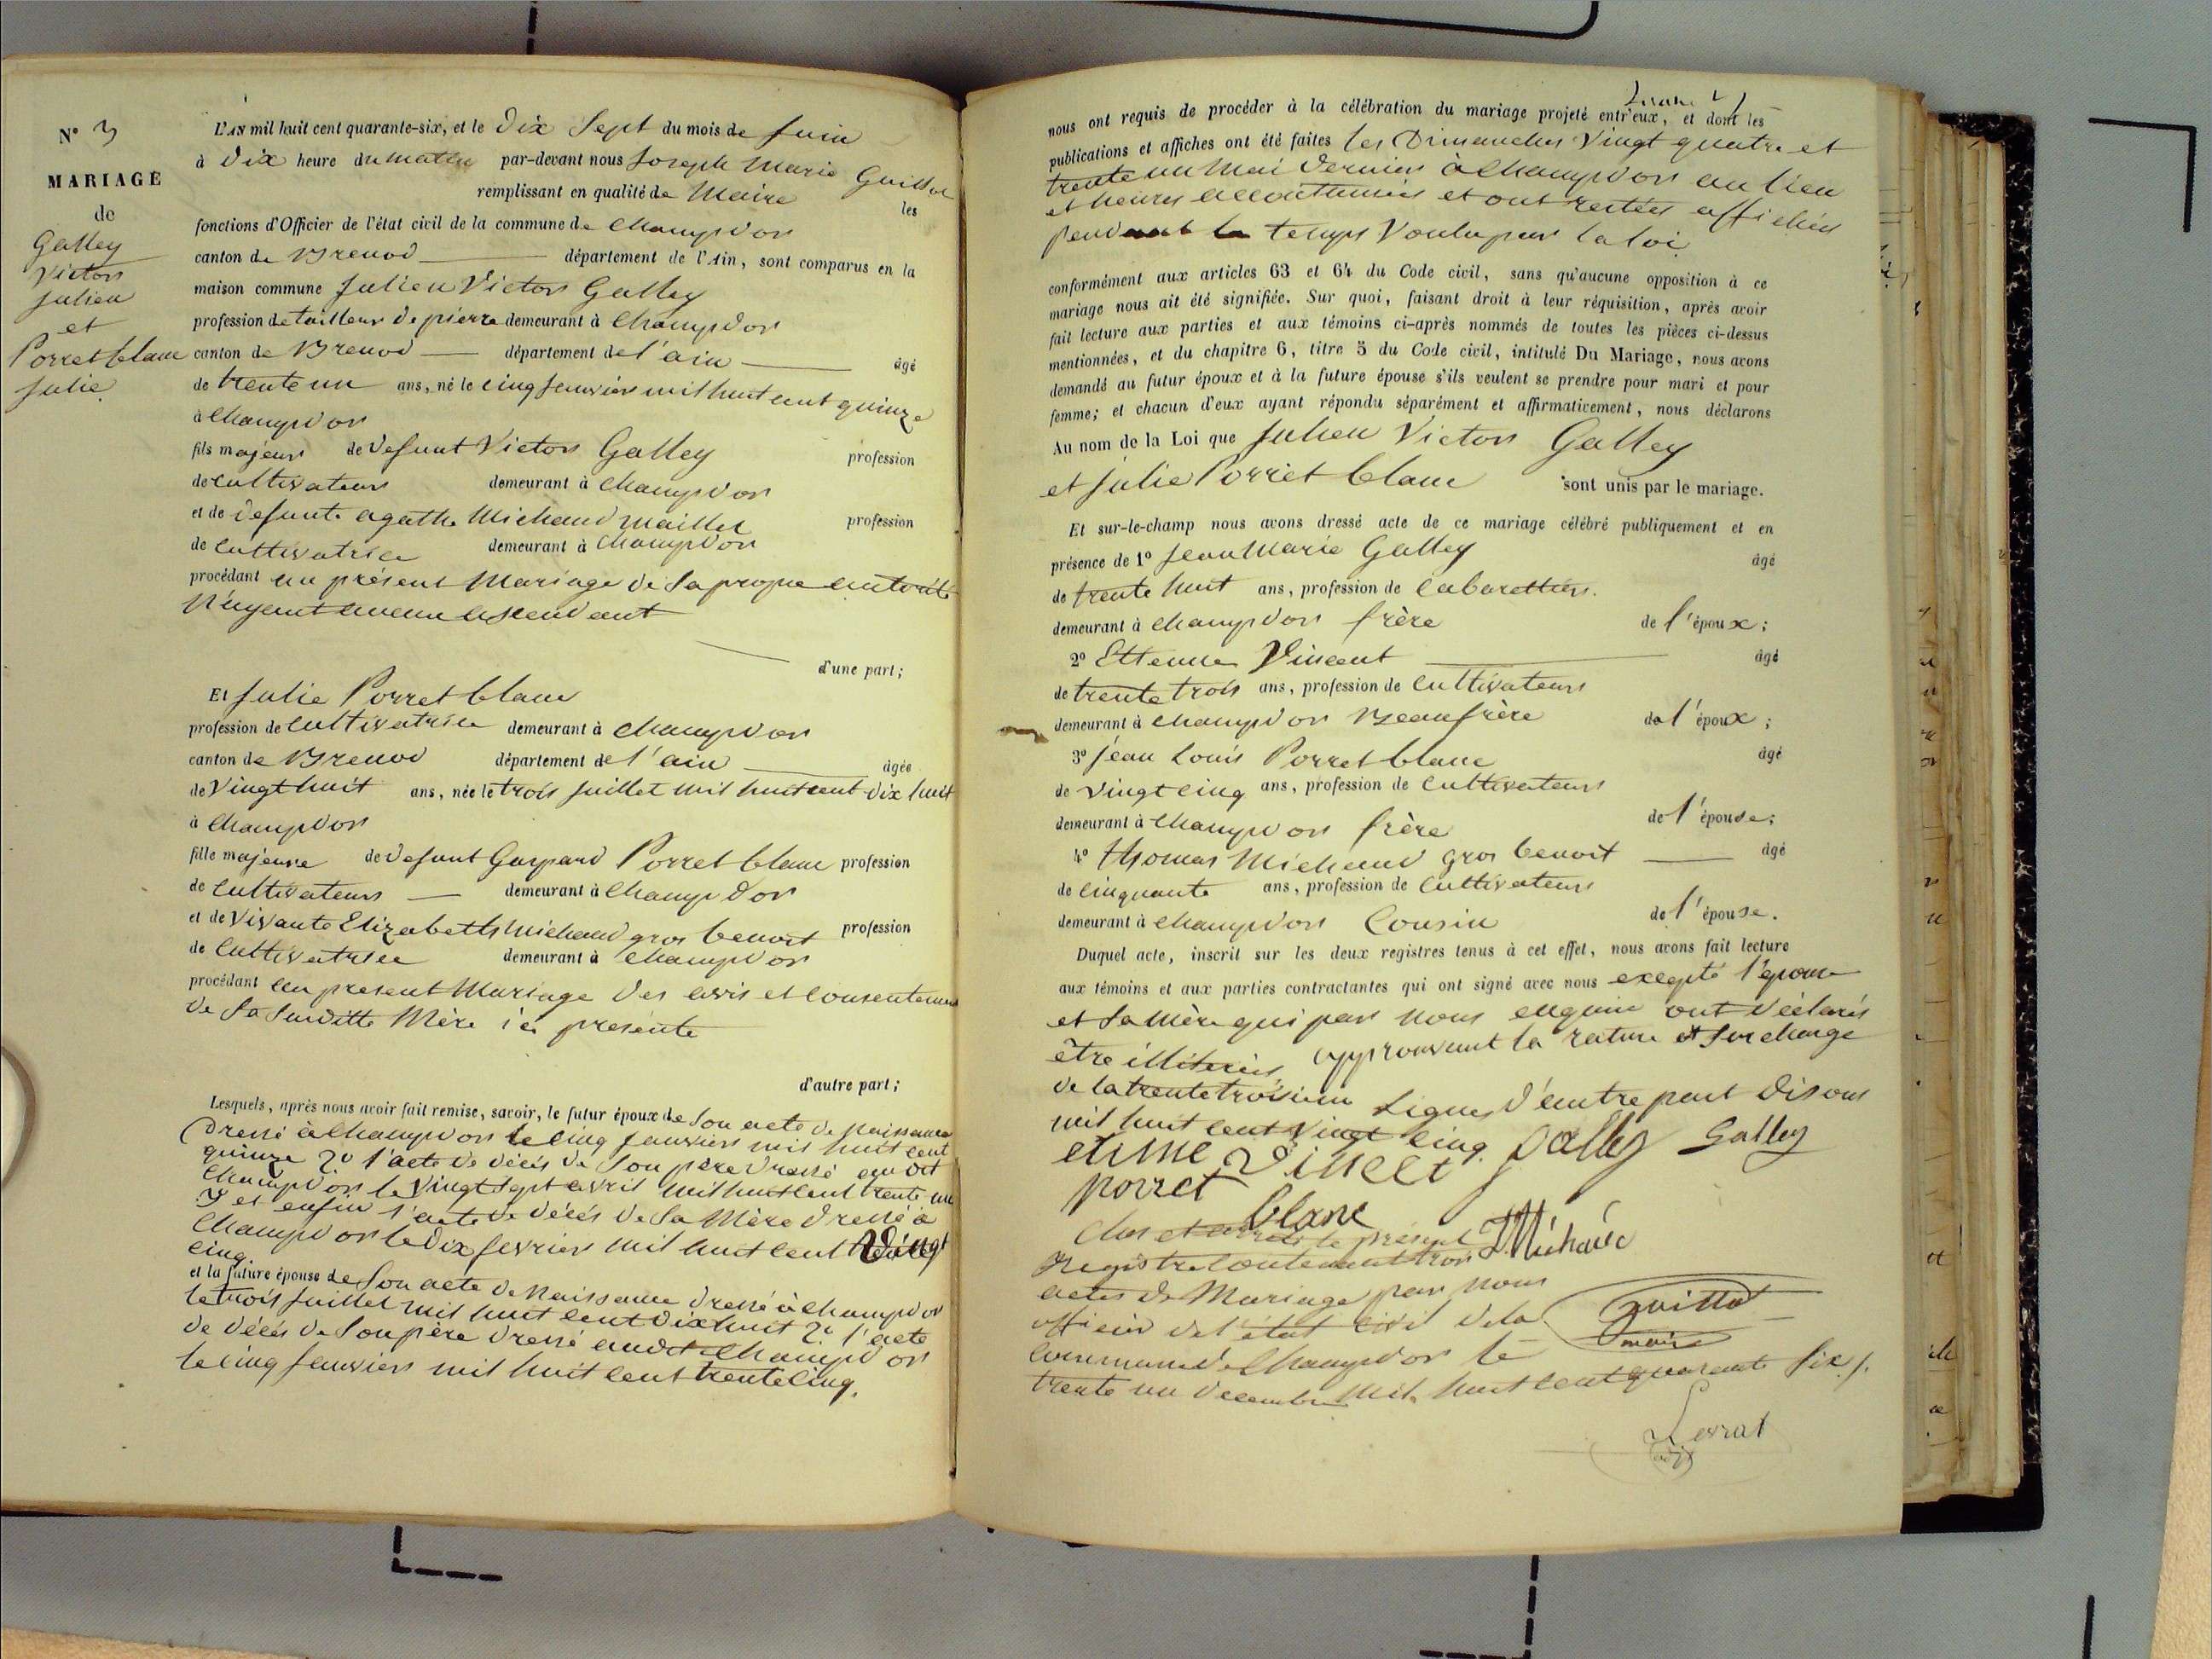 N° 3
MARIAGE
de
Galley
Victor
Julien
et
Porret blanc
Julie.
L'AN mil huit cent quarante-six, et le Dix Sept du mois de Juin
à Dix heure du matin par-devant nous Joseph Marie Guillot
remplissant en qualité de Maire les
fonctions d'Officier de l'état civil de la commune de Champdor
canton de Brenod département de l'Ain, sont comparus en la
maison commune Julien Victor Galley
profession de tailleur de pierre demeurant à Champdor
canton de Brenod département de l'ain âgé
de trente un ans, né le cinq Janvier mil huit cent quinze
à Champdor
fils majeur de Defunt Victor Galley profession
de cultivateur demeurant à Champdor
et de Defunte agathe Michaud maillet profession
de Cultivatrice demeurant à Champdor
procédant au présent Mariage de Sa propre autorité
N'ayant aucun ascendant
d'une part;
Et Julie Porret blanc
profession de Cultivatrice demeurant à Champdor
canton de Brenod département de l'ain âgée
de Vingt huit ans, née le trois Juillet mil huit cent dix huit
à Champdor
fille majeure de Defunt Gaspard Porret blanc profession
de Cultivateur demeurant à Champdor
et de Vivante Elizabeth Michaud gros benoit profession
de Cultivatrice demeurant à Champdor
procédant au present Mariage des avis et Consentement
de Sa Suditte Mère ici présente
d'autre part;
Lesquels, après nous avoir fait remise, savoir, le futur époux de Son acte de Naissance
Dressé à Champdor le cinq Janvier mil huit cent
quinze 2° l'acte de décés de Son père dressé au dit
Champdor le Vingt Sept avril mil huit cent trente un
3° et enfin l'acte de décés de Sa Mère dressé à
Champdor le Dix fevrier mil huit cent Vingt
cinq
et la future épouse de Son acte de Naissance dressé à Champdor
le trois Juillet mil huit cent dix huit 2° l'acte
de décés de Son père dressé audit Champdor
le cinq Janvier mil huit cent trente cinq.
nous ont requis de procéder à la célébration du mariage projeté entr'eux, et dont les
publications et affiches ont été faites les Dimanches Vingt quatre et
trente un Mai Dernier à Champdor au lieu
et heures accoutumées et ont restées affichées
pendant le temps Voulu par la loi
conformément aux articles 63 et 64 du Code civil, sans qu'aucune opposition à ce
mariage nous ait été signifiée. Sur quoi, faisant droit à leur réquisition, après avoir
fait lecture aux parties et aux témoins ci-après nommés de toutes les pièces ci-dessus
mentionnées, et du chapitre 6, titre 5 du Code civil, intitulé Du Mariage, nous avons
demandé au futur époux et à la future épouse s'ils veulent se prendre pour mari et pour
femme; et chacun d'eux ayant répondu séparément et affirmativement, nous déclarons
Au nom de la Loi que Julien Victor Galley
et Julie Porret blanc sont unis par le mariage.
Et sur-le-champ nous avons dressé acte de ce mariage célébré publiquement et en
présence de 1° Jean Marie Galley âgé
de trente huit ans, profession de Cabarettier.
demeurant à Champdor frère de l'époux;
2° Ettenne Vincent âgé
de trente trois ans, profession de Cultivateur
demeurant à Champdor Beaufrère de l'époux;
3° Jean Louis Porret blanc âgé
de Vingt cinq ans, profession de Cultivateur
demeurant à Champdor frère de l'épouse;
4° thomas Michaud gros benoit âgé
de Cinquante ans, profession de Cultivateur
demeurant à Champdor Cousin de l'épouse.
Duquel acte, inscrit sur les deux registres tenus à cet effet, nous avons fait lecture
aux témoins et aux parties contractantes qui ont signé avec nous excepté l'épouse
et Sa Mère qui par nous enquis ont déclarés
être illiterés, approuvant la rature et Surcharge
de la trente troisième Ligne, d'autre part Disons
mil huit cent vingt cinq. Galley Galley
porret
blanc
Clos et arrêté le présent T Michaud
Registre Contenant trois
actes de Mariage par Nous
officier de l'état civil de la Guillot
Maire
Commune de Champdor le
trente un Decembre Mil huit cent quarante Six /.